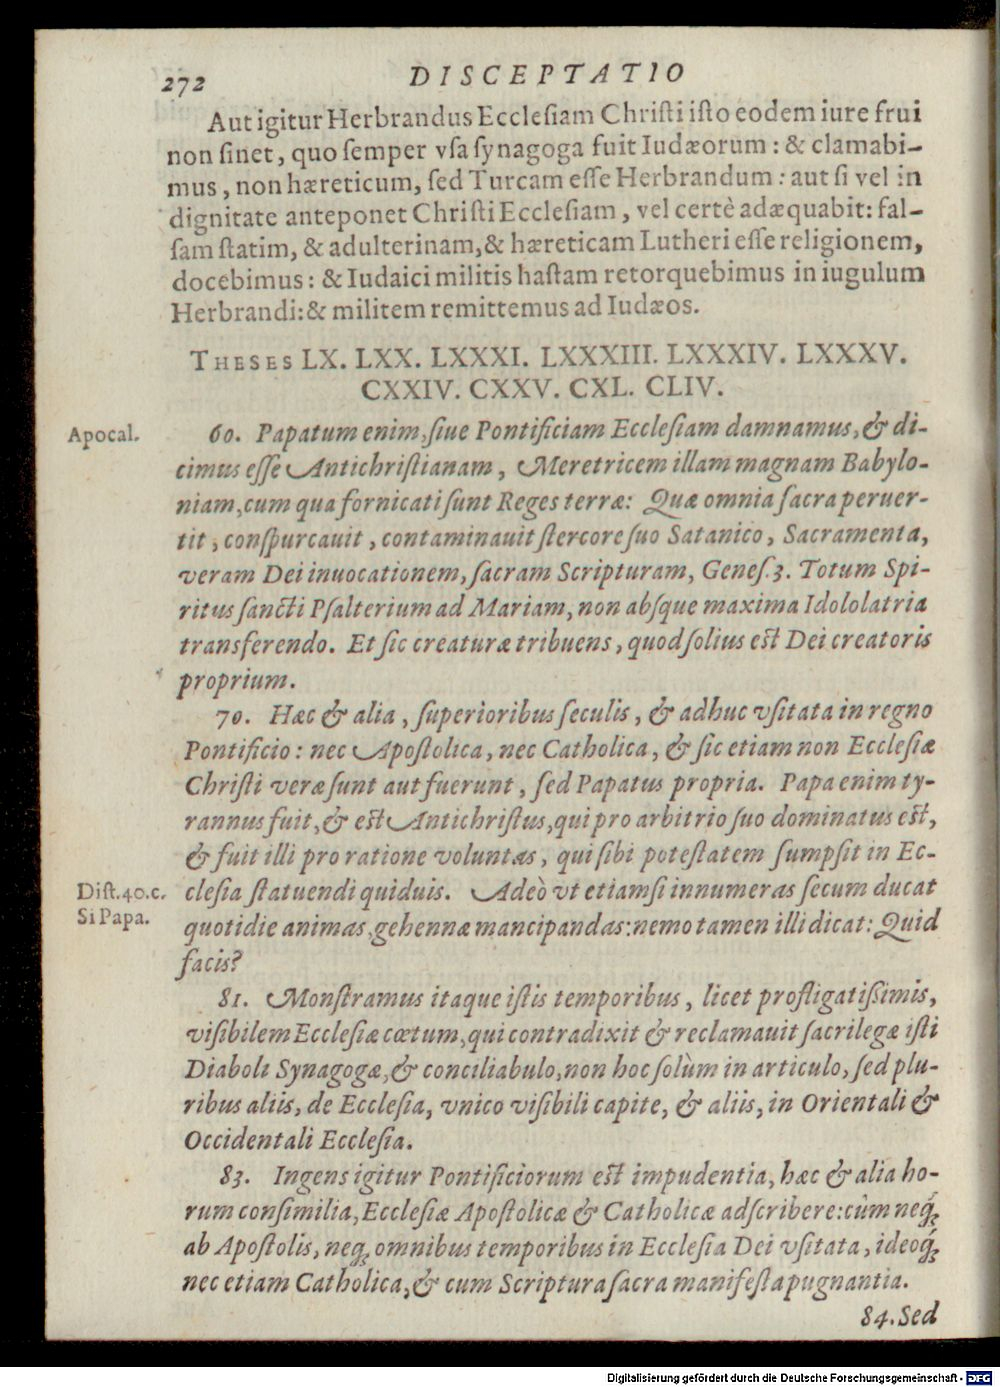 272 DISCEPTATIO
Aut igitur Herbrandus Eccleſiam Chriſti iſto eodem iure frui
non ſinet, quo ſemper vſa ſynagoga fuit Iudæorum: & clamabi-
mus, non hæreticum, ſed Turcam eſſe Herbrandum: aut ſi vel in
dignitate anteponet Chriſti Eccleſiam, vel certè adæquabit: fal-
ſam ſtatim, & adulterinam, & hæreticam Lutheri eſſe religionem,
docebimus: & Iudaici militis haſtam retorquebimus in iugulum
Herbrandi: & militem remittemus ad Iudæos.
THESES LX. LXX. LXXXI. LXXXIII. LXXXIV. LXXXV.
CXXIV. CXXV. CXL. CLIV.
Apocal. 60. Papatum enim, ſiue Pontificiam Eccleſiam damnamus, & di-
cimus eſſe Antichriſtianam, Meretricem illam magnam Babylo-
niam, cum qua fornicati ſunt Reges terræ: Quæ omnia ſacra peruer-
tit, conſpurcauit, contaminauit ſtercore ſuo Satanico, Sacramenta,
veram Dei inuocationem, ſacram Scripturam, Geneſ. 3. Totum Spi-
ritus ſancti Pſalterium ad Mariam, non abſque maxima Idololatria
transferendo. Et ſic creaturæ tribuens, quod ſolius eſt Dei creatoris
proprium.
70. Hæc & alia, ſuperioribus ſeculis, & adhuc vſitata in regno
Pontificio: nec Apoſtolica, nec Catholica, & ſic etiam non Eccleſiæ
Chriſti veræ ſunt aut fuerunt, ſed Papatus propria. Papa enim ty-
rannus fuit, & eſt Antichriſtus, qui pro arbitrio ſuo dominatus eſt,
& fuit illi pro ratione voluntas, qui ſibi poteſtatem ſumpſit in Ec-
Diſt. 40. c. cleſia ſtatuendi quiduis. Adeò vt etiamſi innumeras ſecum ducat
Si Papa. quotidie animas, gehennæ mancipandas: nemo tamen illi dicat: Quid
facis?
81. Monſtramus itaque iſtis temporibus, licet profligatiſsimis,
viſibilem Eccleſiæ cœtum, qui contradixit & reclamauit ſacrilegæ iſti
Diaboli Synagogæ, & conciliabulo, non hoc ſolùm in articulo, ſed plu-
ribus aliis, de Eccleſia, vnico viſibili capite, & aliis, in Orientali &
Occidentali Eccleſia.
83. Ingens igitur Pontificiorum eſt impudentia, hæc & alia ho-
rum conſimilia, Eccleſiæ Apoſtolicæ & Catholicæ adſcribere: cùm neq́;
ab Apoſtolis, neq; omnibus temporibus in Eccleſia Dei vſitata, ideoq́;
nec etiam Catholica, & cum Scriptura ſacra manifeſta pugnantia.
84. Sed
Digitalisierung gefördert durch die Deutsche Forschungsgemeinschaft - DFG